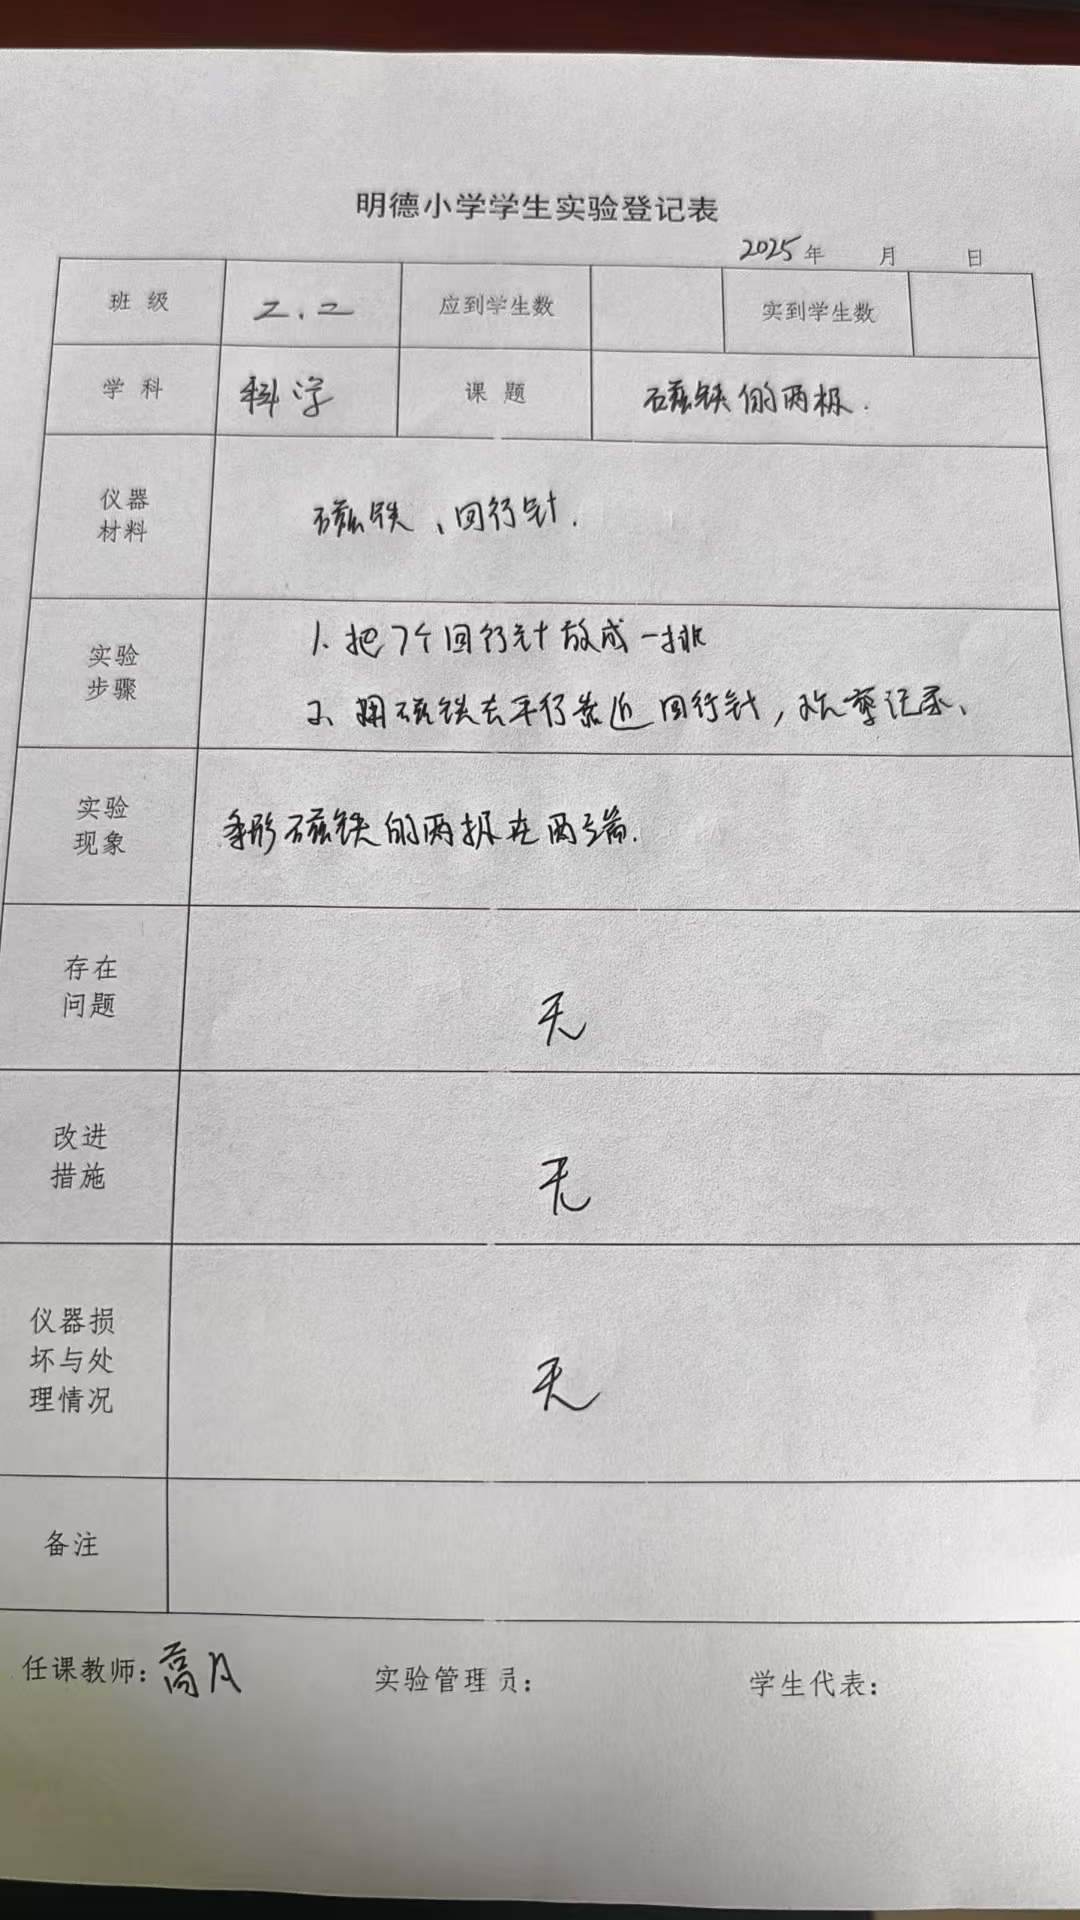 明德小学学生实验登记表
2025年 月 日
班 级 二.二 应到学生数 实到学生数
学 科 科学 课 题 磁铁的两极.
仪器
材料
磁铁、回行针.
实验
步骤
1. 把7个回行针放成一排
2、用磁铁去平行靠近回行针,观察记录、
实验
现象
条形磁铁的两极在两端.
存在
问题
无
改进
措施
无
仪器损
坏与处
理情况
无
备注
任课教师:高月 实验管理员: 学生代表: